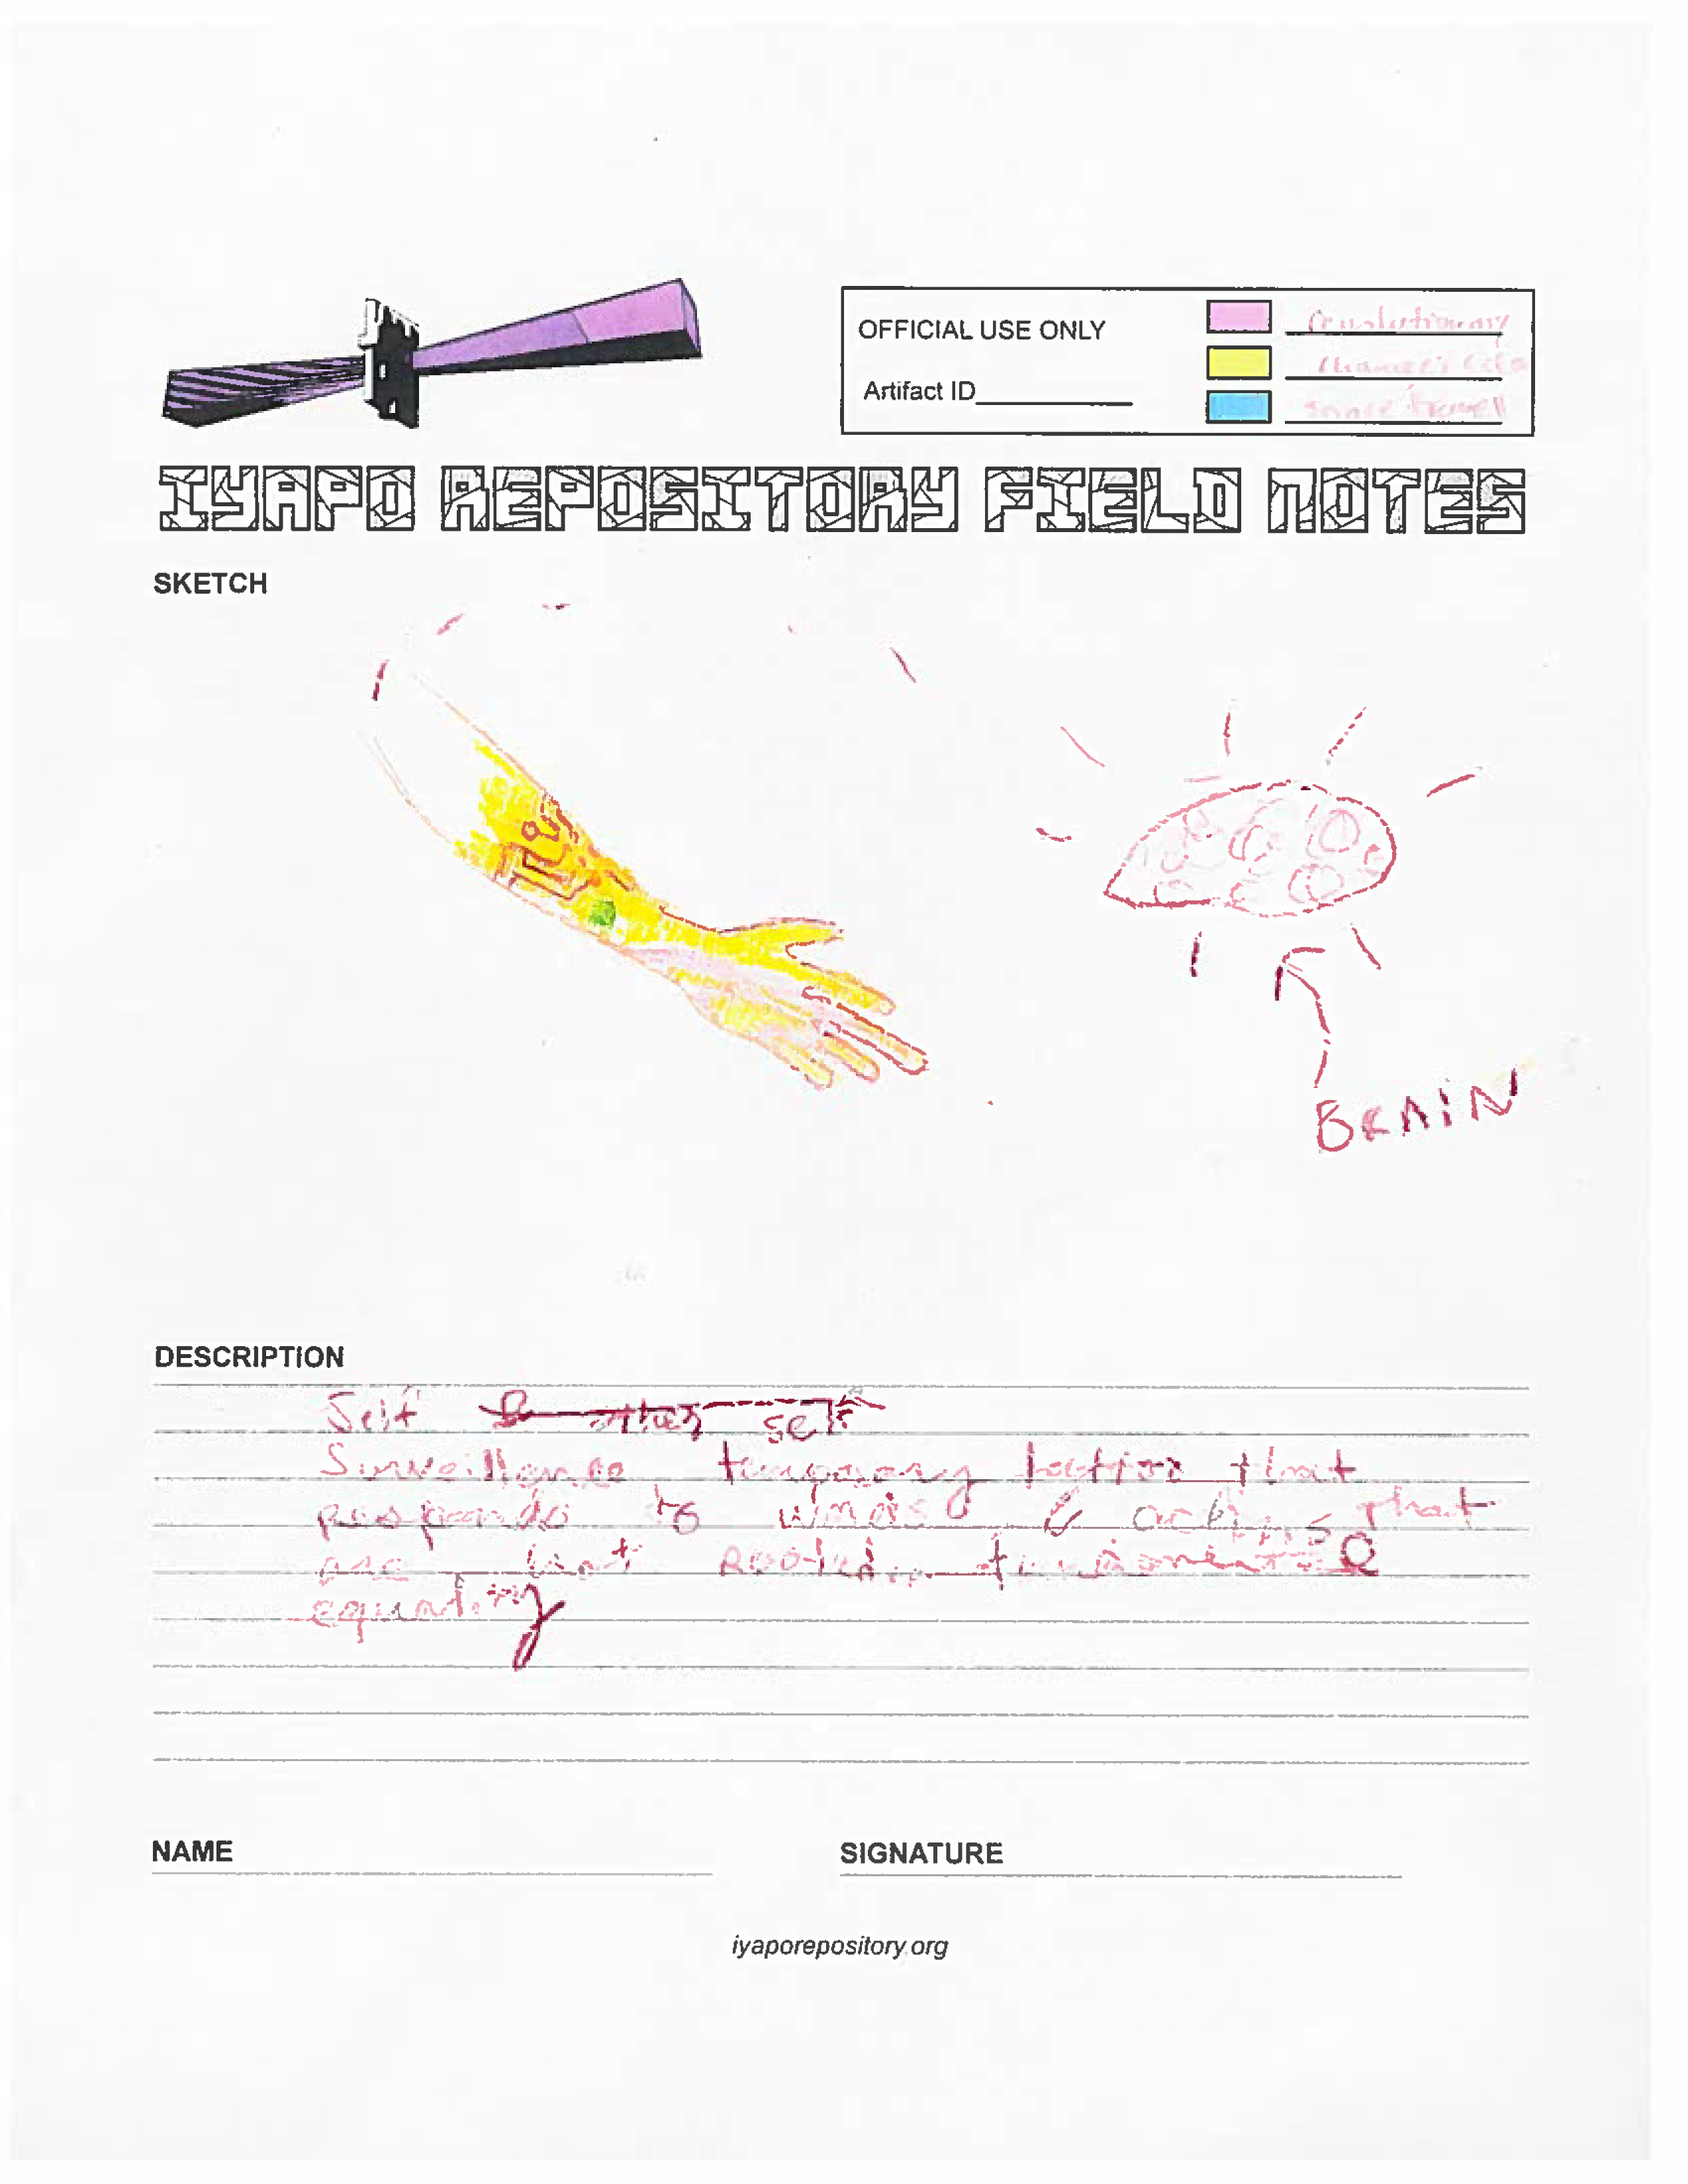 OFFICIAL USE ONLY
revolutionary
Artifact ID
space travel
IYAPO REPOSITORY FIELD NOTES
SKETCH
BRAIN
DESCRIPTION
Self
Surveillance temporary tattoo that
responds to words & actions that
are not rooted in
equality
NAME
SIGNATURE
iyaporepository.org